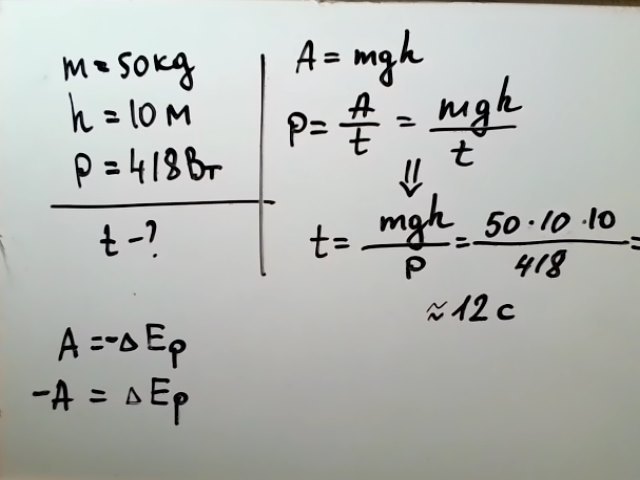 m = 50кg
h = 10 м
P = 418 Вт
t - ?
A = mgh
P = A/t = mgh/t
⇓
t = mgh/P = 50·10·10/418 =
≈ 12 c
A = -Δ Ep
-A = Δ Ep